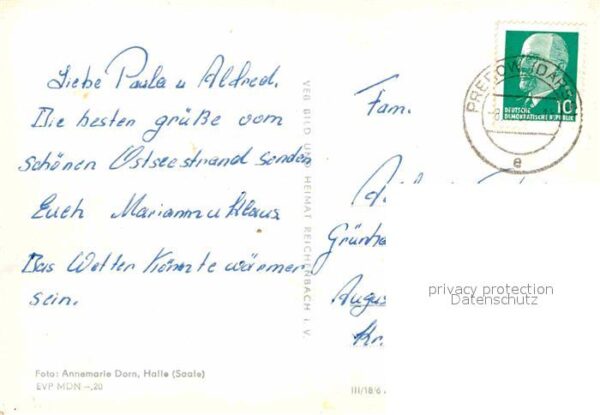 Liebe Paula u Alfred.
Die besten grüße vom
schönen Ostseestrand senden
Euch Mariann u Klaus
Das Wetter könnte wärmer
sein.
Foto: Annemarie Dorn, Halle (Saale)
EVP MDN -,20
VEB BILD UND HEIMAT REICHENBACH I. V.
III/18/6
Fam.
Augus
Kr.
PREROW (DARSS)
e
DEUTSCHE
DEMOKRATISCHE REPUBLIK
10
privacy protection
Datenschutz